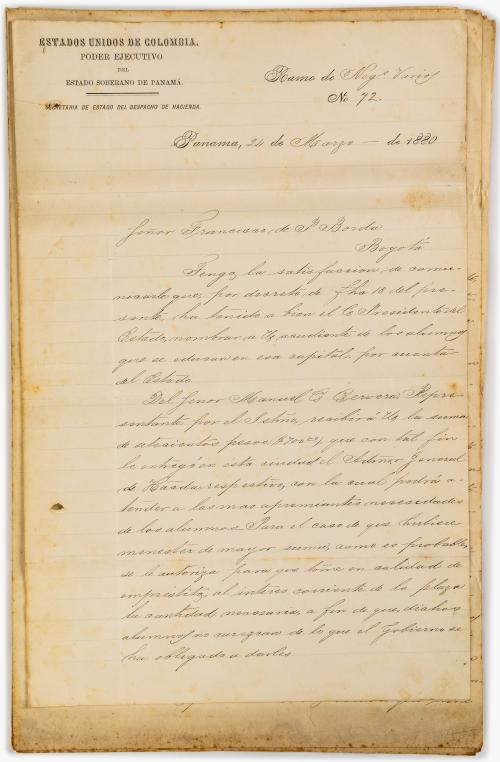 ESTADOS UNIDOS DE COLOMBIA.
PODER EJECUTIVO
DEL
ESTADO SOBERANO DE PANAMÁ.
SECRETARIA DE ESTADO DEL DESPACHO DE HACIENDA.
Ramo de Negs. Varios
No. 72.
Panama, 24 de Marzo — de 1880
Señor Francisco de P Borda
Bogotá
Tengo la satisfaccion de comu-
nicarle que, por decreto de fha 18 del pre-
sente, ha tenido a bien el C Presidente del
Estado, nombrar a U, acudiente de los alumnos
que se educan en esa capital por cuenta
del Estado.
Del Señor Manuel E Cervera, Repre-
sentante por el Istmo, recibirá U la suma
de setecientos pesos ($700) que con tal fin
le entregó en esta ciudad el Admor General
de Hacda respectivo, con la cual podrá a-
tender a las mas apremiantes necesidades
de los alumnos. Para el caso de que hubiere
menester de mayor suma, como es probable,
se le autoriza para que tome en calidad de
emprestito, al interes corriente de la plaza
la cantidad necesaria, a fin de que, dichos
alumnos no carezcan de lo que el Gobierno se
ha obligado a darles